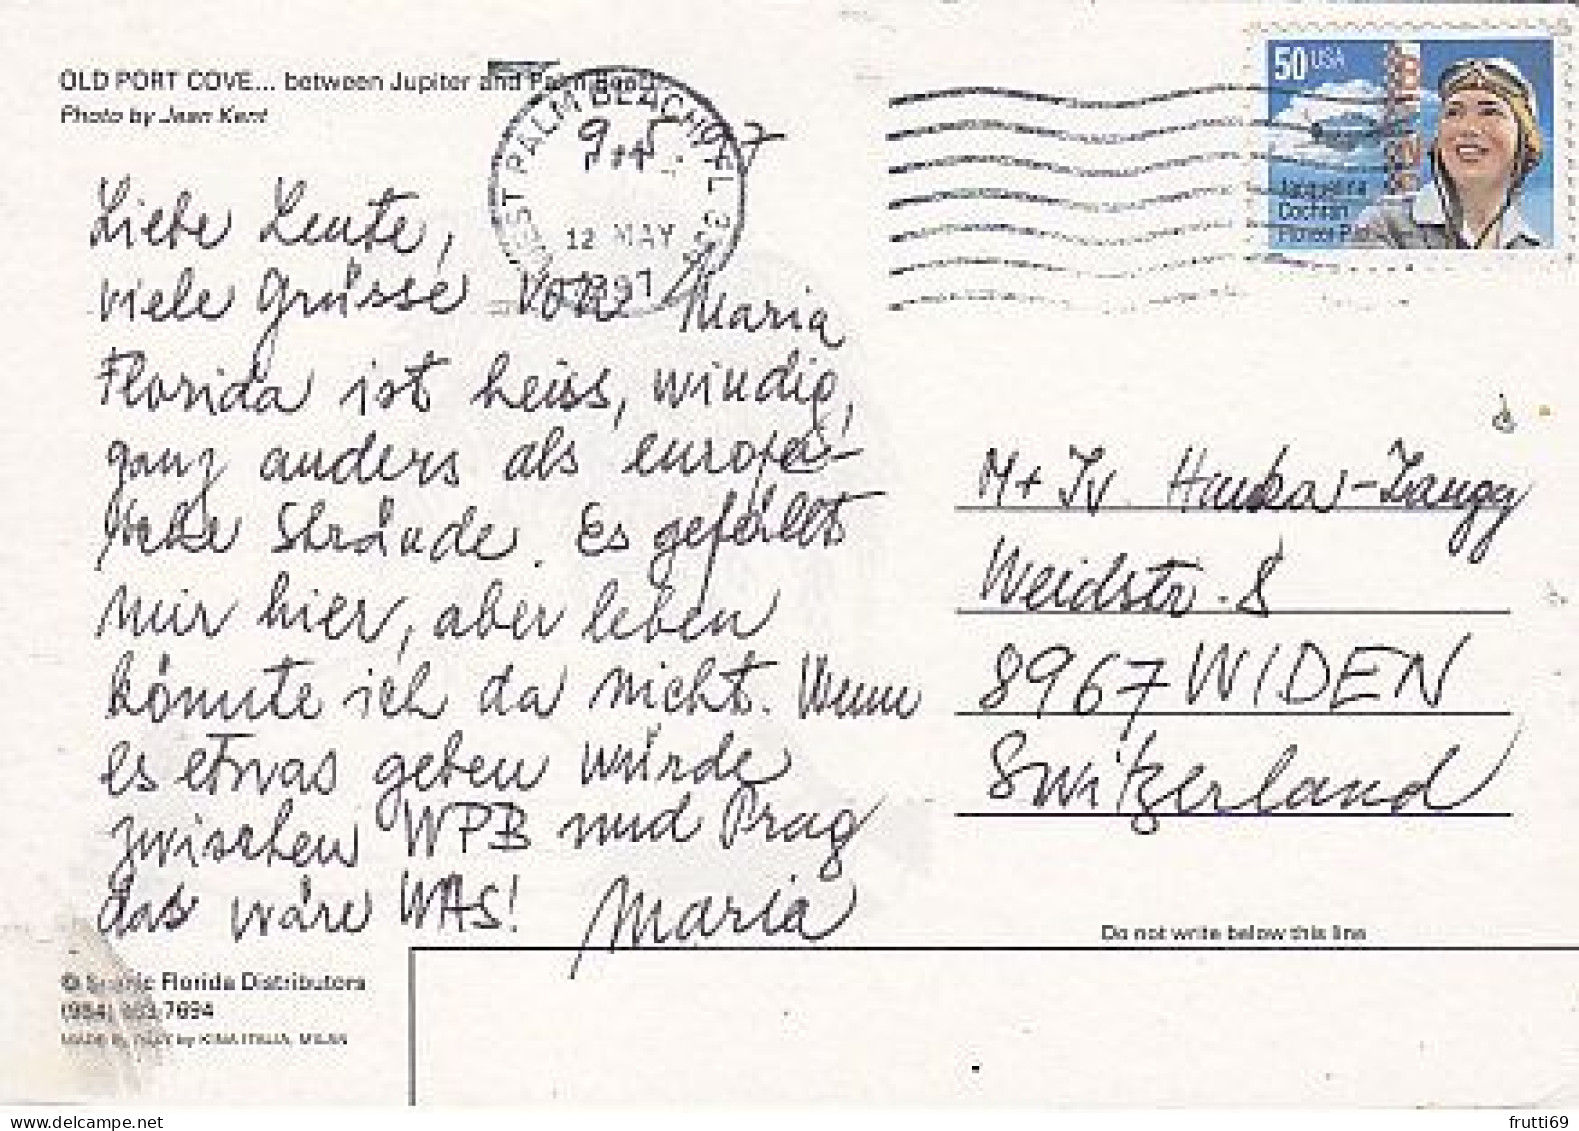 OLD PORT COVE... between Jupiter and Palm Beach
Photo by Jean Kent
WEST PALM BEACH FL
12 MAY
1997
9.5.
50 USA
Jacqueline
Cochran
Pioneer Pilot
Liebe Leute,
viele Grüsse von Maria
Florida ist heiss, windig,
ganz anders als europäi-
sche Strände. Es gefällt
mir hier, aber leben
könnte ich da nicht. Wenn
es etwas geben würde
zwischen WPB und Prag
das wäre WAS! Maria
M + Iv. Hauka-Zaugg
Weidstr. 8
8967 WIDEN
Switzerland
Do not write below this line
© Scenic Florida Distributors
7694
MADE IN ITALY by KINA ITALIA, MILAN
frutti69